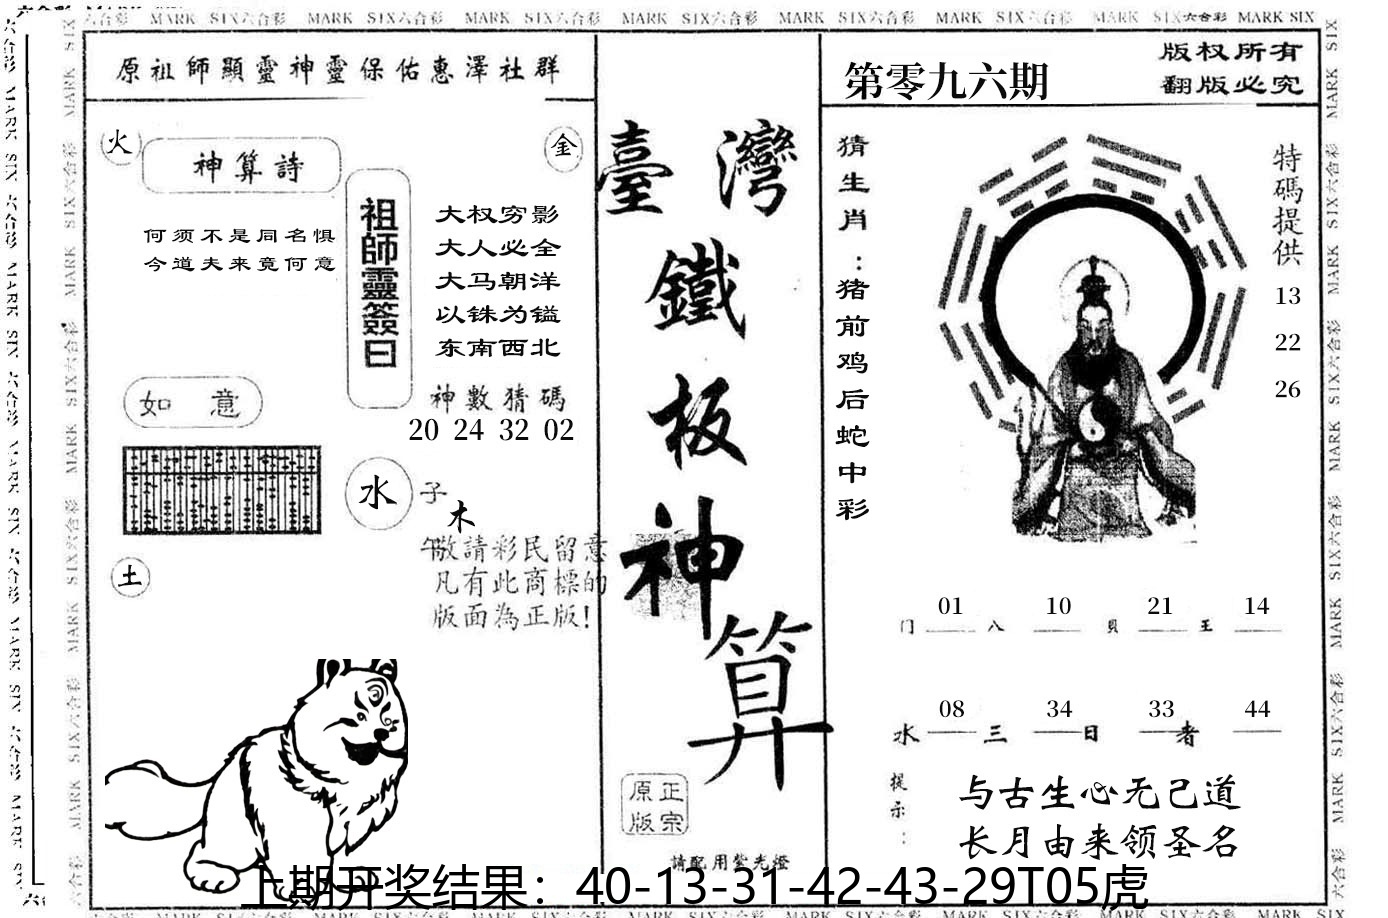 MARK SIX六合彩 MARK SIX六合彩 MARK SIX六合彩 MARK SIX六合彩 MARK SIX六合彩 MARK SIX六合彩 MARK SIX六合彩 MARK SIX
原祖師顯靈神靈保佑惠澤社群
火
神算詩
金
何须不是同名惧
今道夫来竟何意
祖師靈簽曰
大权穷影
大人必全
大马朝洋
以铢为镒
东南西北
神數猜碼
20 24 32 02
如意
水
子
木
午
敬請彩民留意
凡有此商標的
版面為正版!
土
臺灣
鐵
板
神
算
正宗
原版
請配用紫光燈
第零九六期
版权所有
翻版必究
猜生肖：猪前鸡后蛇中彩
特碼提供
13
22
26
门 01 八 10 貝 21 王 14
水 08 三 34 日 33 者 44
提示：
与古生心无己道
长月由来领圣名
上期开奖结果：40-13-31-42-43-29T05虎